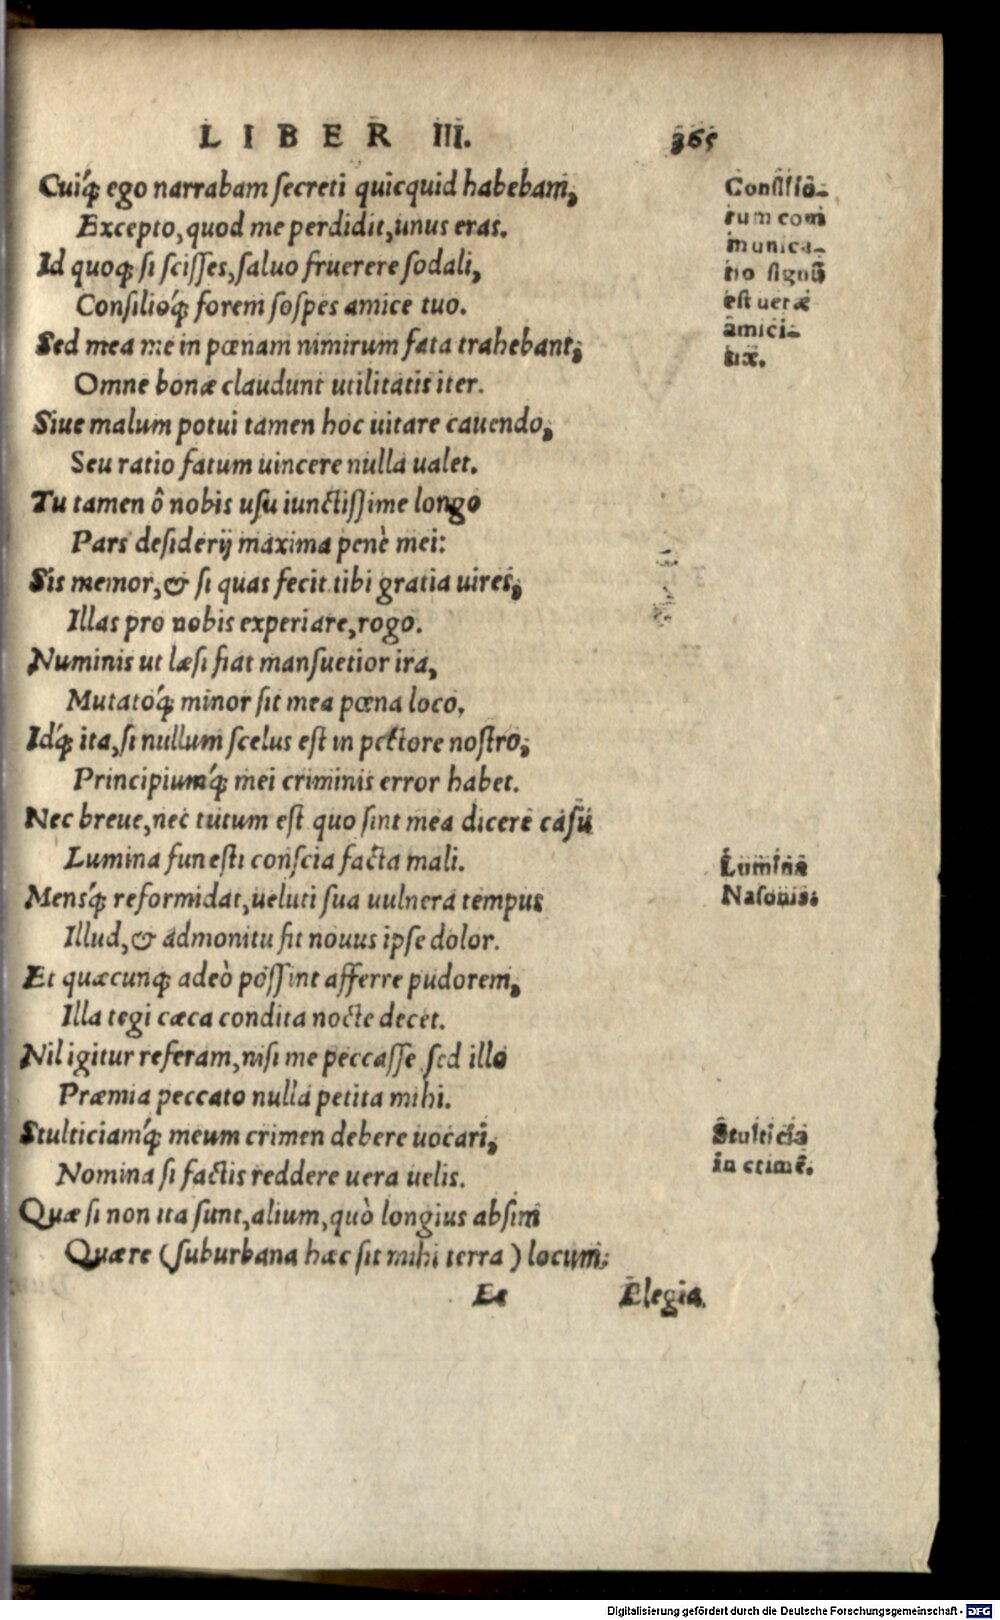 LIBER III. 365
Cuiq́; ego narrabam secreti quicquid habebam,
Excepto, quod me perdidit, unus eras.
Id quoq; si scisses, saluo fruerere sodali,
Consilioq́; forem sospes amice tuo.
Sed mea me in pœnam nimirum fata trahebant,
Omne bonæ claudunt utilitatis iter.
Siue malum potui tamen hoc uitare cauendo,
Seu ratio fatum uincere nulla ualet.
Tu tamen ô nobis usu iunctissime longo
Pars desiderij maxima penè mei:
Sis memor, & si quas fecit tibi gratia uires,
Illas pro nobis experiare, rogo.
Numinis ut læsi fiat mansuetior ira,
Mutatoq́; minor sit mea pœna loco.
Idq́; ita, si nullum scelus est in pectore nostro,
Principiumq́; mei criminis error habet.
Nec breue, nec tutum est quo sint mea dicere casũ
Lumina funesti conscia facta mali.
Mensq́; reformidat, ueluti sua uulnera tempus
Illud, & admonitu fit nouus ipse dolor.
Et quæcunq; adeò possint afferre pudorem,
Illa tegi cæca condita nocte decet.
Nil igitur referam, nisi me peccasse sed illo
Præmia peccato nulla petita mihi.
Stulticiamq́; meum crimen debere uocari,
Nomina si factis reddere uera uelis.
Quæ si non ita sunt, alium, quò longius absim
Quære (suburbana hæc sit mihi terra) locum.
Ee Elegia
Consiliō-
rum com
munica-
tio signũ
est ueræ
amici-
tiæ.
Lumina
Nasonis.
Stulticia
in crimē.
Digitalisierung gefördert durch die Deutsche Forschungsgemeinschaft - DFG